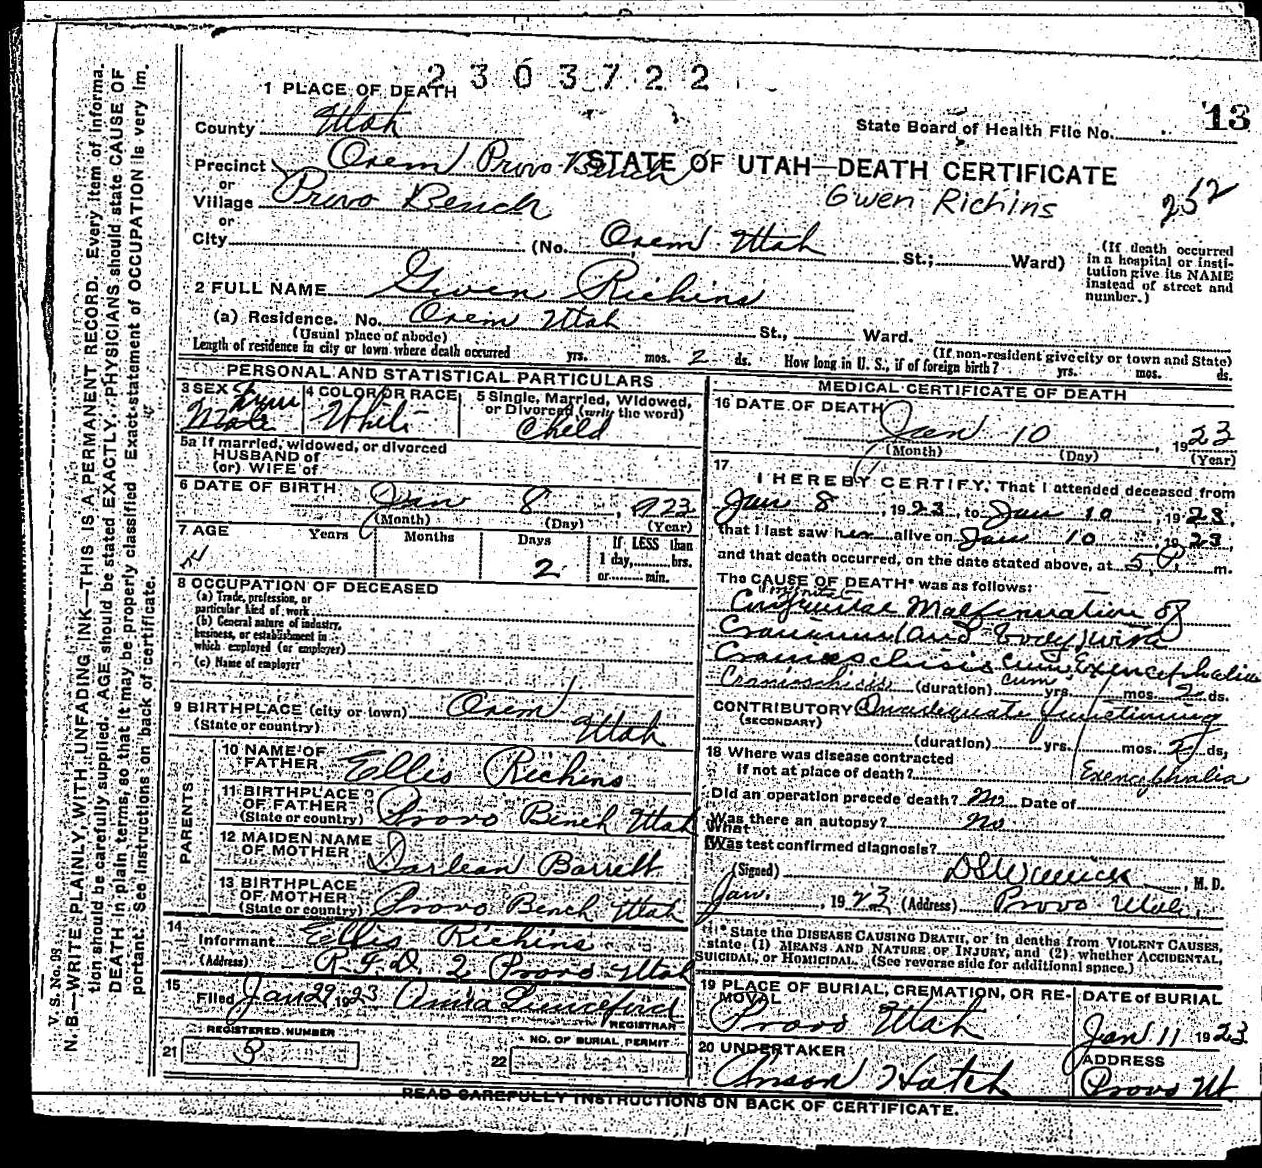 2303722
1 PLACE OF DEATH
13
County Utah
State Board of Health File No.
Precinct Orem Provo Bench
STATE OF UTAH—DEATH CERTIFICATE
or
Village Provo Bench
Gwen Richins
252
or
City (No. Orem Utah St.; Ward)
(If death occurred in a hospital or insti-
tution give its NAME instead of street and number.)
2 FULL NAME Gwen Richins
(a) Residence. No. Orem Utah St., Ward.
(Usual place of abode)
(If non-resident give city or town and State)
Length of residence in city or town where death occurred yrs. mos. 2 ds. How long in U. S., if of foreign birth? yrs. mos. ds.
PERSONAL AND STATISTICAL PARTICULARS
3 SEX Male
4 COLOR OR RACE White
5 Single, Married, Widowed, or Divorced (write the word) Child
5a If married, widowed, or divorced
HUSBAND of
(or) WIFE of
6 DATE OF BIRTH Jan 8, 1923
(Month) (Day) (Year)
7 AGE Years Months Days If LESS than
1 day, hrs.
or min.
2
8 OCCUPATION OF DECEASED
(a) Trade, profession, or
particular kind of work
(b) General nature of industry,
business, or establishment in
which employed (or employer)
(c) Name of employer
9 BIRTHPLACE (city or town) Orem
(State or country) Utah
PARENTS
10 NAME OF FATHER Ellis Richins
11 BIRTHPLACE OF FATHER (State or country) Provo Bench Utah
12 MAIDEN NAME OF MOTHER Darlean Barrett
13 BIRTHPLACE OF MOTHER (State or country) Provo Bench Utah
14
Informant Ellis Richins
(Address) R.F.D. 2 Provo Utah
15
Filed Jan 29 1923 Anna Lunceford
REGISTRAR
REGISTERED NUMBER
21 3
NO. OF BURIAL PERMIT
22
MEDICAL CERTIFICATE OF DEATH
16 DATE OF DEATH
Jan 10, 1923
(Month) (Day) (Year)
17
I HEREBY CERTIFY, That I attended deceased from
Jan 8, 1923, to Jan 10, 1923,
that I last saw her alive on Jan 10, 1923,
and that death occurred, on the date stated above, at 5 P. m.
The CAUSE OF DEATH* was as follows:
Congenital
Congenital Malformation of
Cranium (and body) with
Cranioschisis cum Exencephalia
Cranioschisis (duration) cum yrs. mos. 2 ds.
CONTRIBUTORY Inadequate functioning
(SECONDARY)
(duration) yrs. mos. 2 ds,
18 Where was disease contracted
if not at place of death? Exencephalia
Did an operation precede death? No Date of
Was there an autopsy? No
What
Was test confirmed diagnosis?
(Signed) , M. D.
Jan. , 1923 (Address) Provo Utah
* State the DISEASE CAUSING DEATH, or in deaths from VIOLENT CAUSES,
state (1) MEANS AND NATURE OF INJURY, and (2) whether ACCIDENTAL,
SUICIDAL, or HOMICIDAL. (See reverse side for additional space.)
19 PLACE OF BURIAL, CREMATION, OR RE-
MOVAL
Provo Utah
DATE of BURIAL
Jan 11 1923
20 UNDERTAKER
Anson Hatch
ADDRESS
Provo Ut
READ CAREFULLY INSTRUCTIONS ON BACK OF CERTIFICATE.
V. S. No. 98
N. B.—WRITE PLAINLY, WITH UNFADING INK—THIS IS A PERMANENT RECORD. Every item of informa-
tion should be carefully supplied. AGE should be stated EXACTLY. PHYSICIANS should state CAUSE OF
DEATH in plain terms, so that it may be properly classified. Exact statement of OCCUPATION is very im-
portant. See instructions on back of certificate.